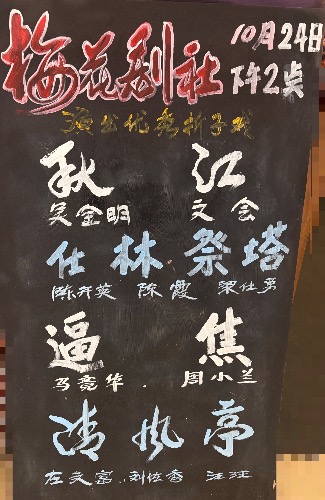 梅花剧社 10月24日
下午2点
演出优秀折子戏
秋江
吴金明 文会
仕林祭塔
陈乔英 陈霞 梁仕勇
逼焦
马竞华 周小兰
清风亭
左文富 刘佐香 汪汪